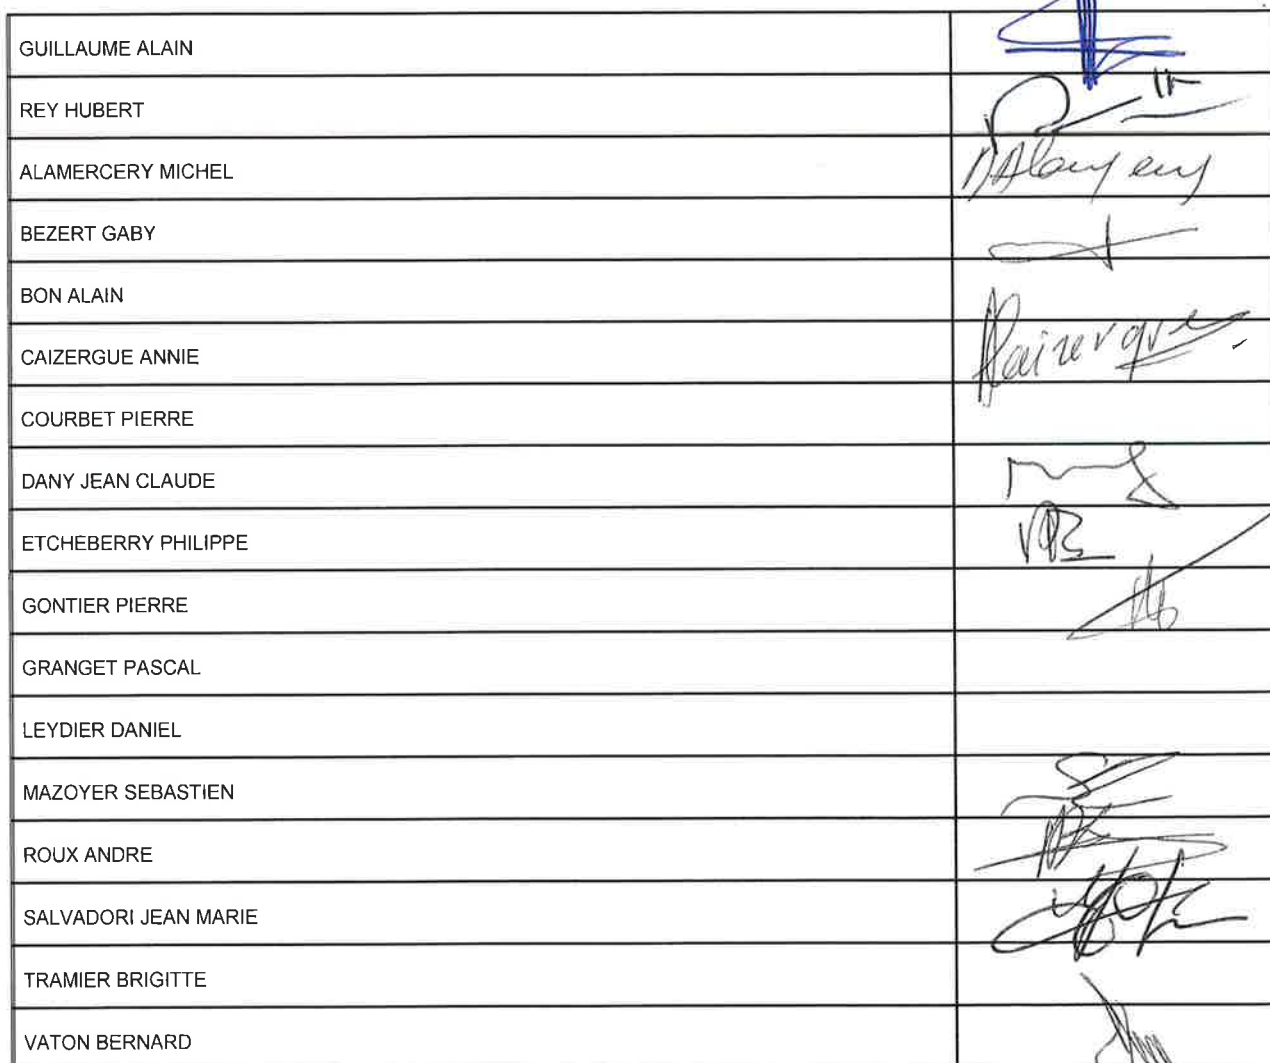 GUILLAUME ALAIN
REY HUBERT
ALAMERCERY MICHEL
BEZERT GABY
BON ALAIN
CAIZERGUE ANNIE
Caizergue
COURBET PIERRE
DANY JEAN CLAUDE
ETCHEBERRY PHILIPPE
GONTIER PIERRE
GRANGET PASCAL
LEYDIER DANIEL
MAZOYER SEBASTIEN
ROUX ANDRE
SALVADORI JEAN MARIE
TRAMIER BRIGITTE
VATON BERNARD